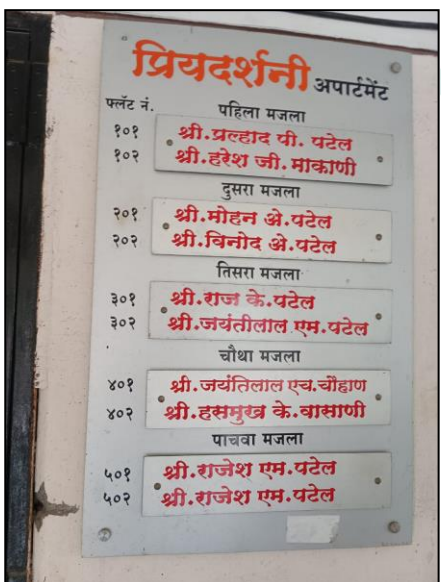 प्रियदर्शनी अपार्टमेंट
फ्लॅट नं. पहिला मजला
१०१ श्री.प्रल्हाद पी. पटेल
१०२ श्री.हरेश जी. माकाणी
दुसरा मजला
२०१ श्री.मोहन अे.पटेल
२०२ श्री.विनोद अे.पटेल
तिसरा मजला
३०१ श्री.राज के.पटेल
३०२ श्री.जयंतीलाल एम.पटेल
चौथा मजला
४०१ श्री.जयंतिलाल एच.चौहाण
४०२ श्री.हसमुख के.वासाणी
पाचवा मजला
५०१ श्री.राजेश एम.पटेल
५०२ श्री.राजेश एम.पटेल